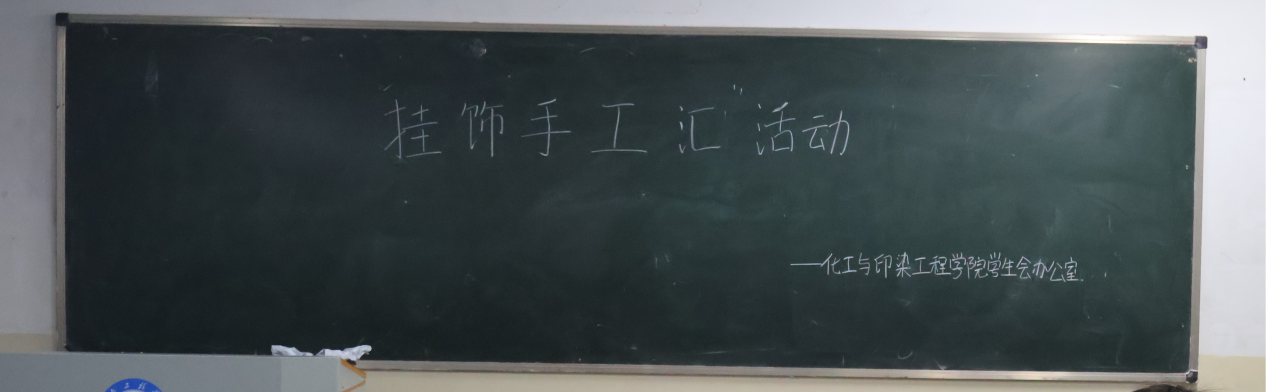 “挂饰手工汇”活动
——化工与印染工程学院学生会办公室